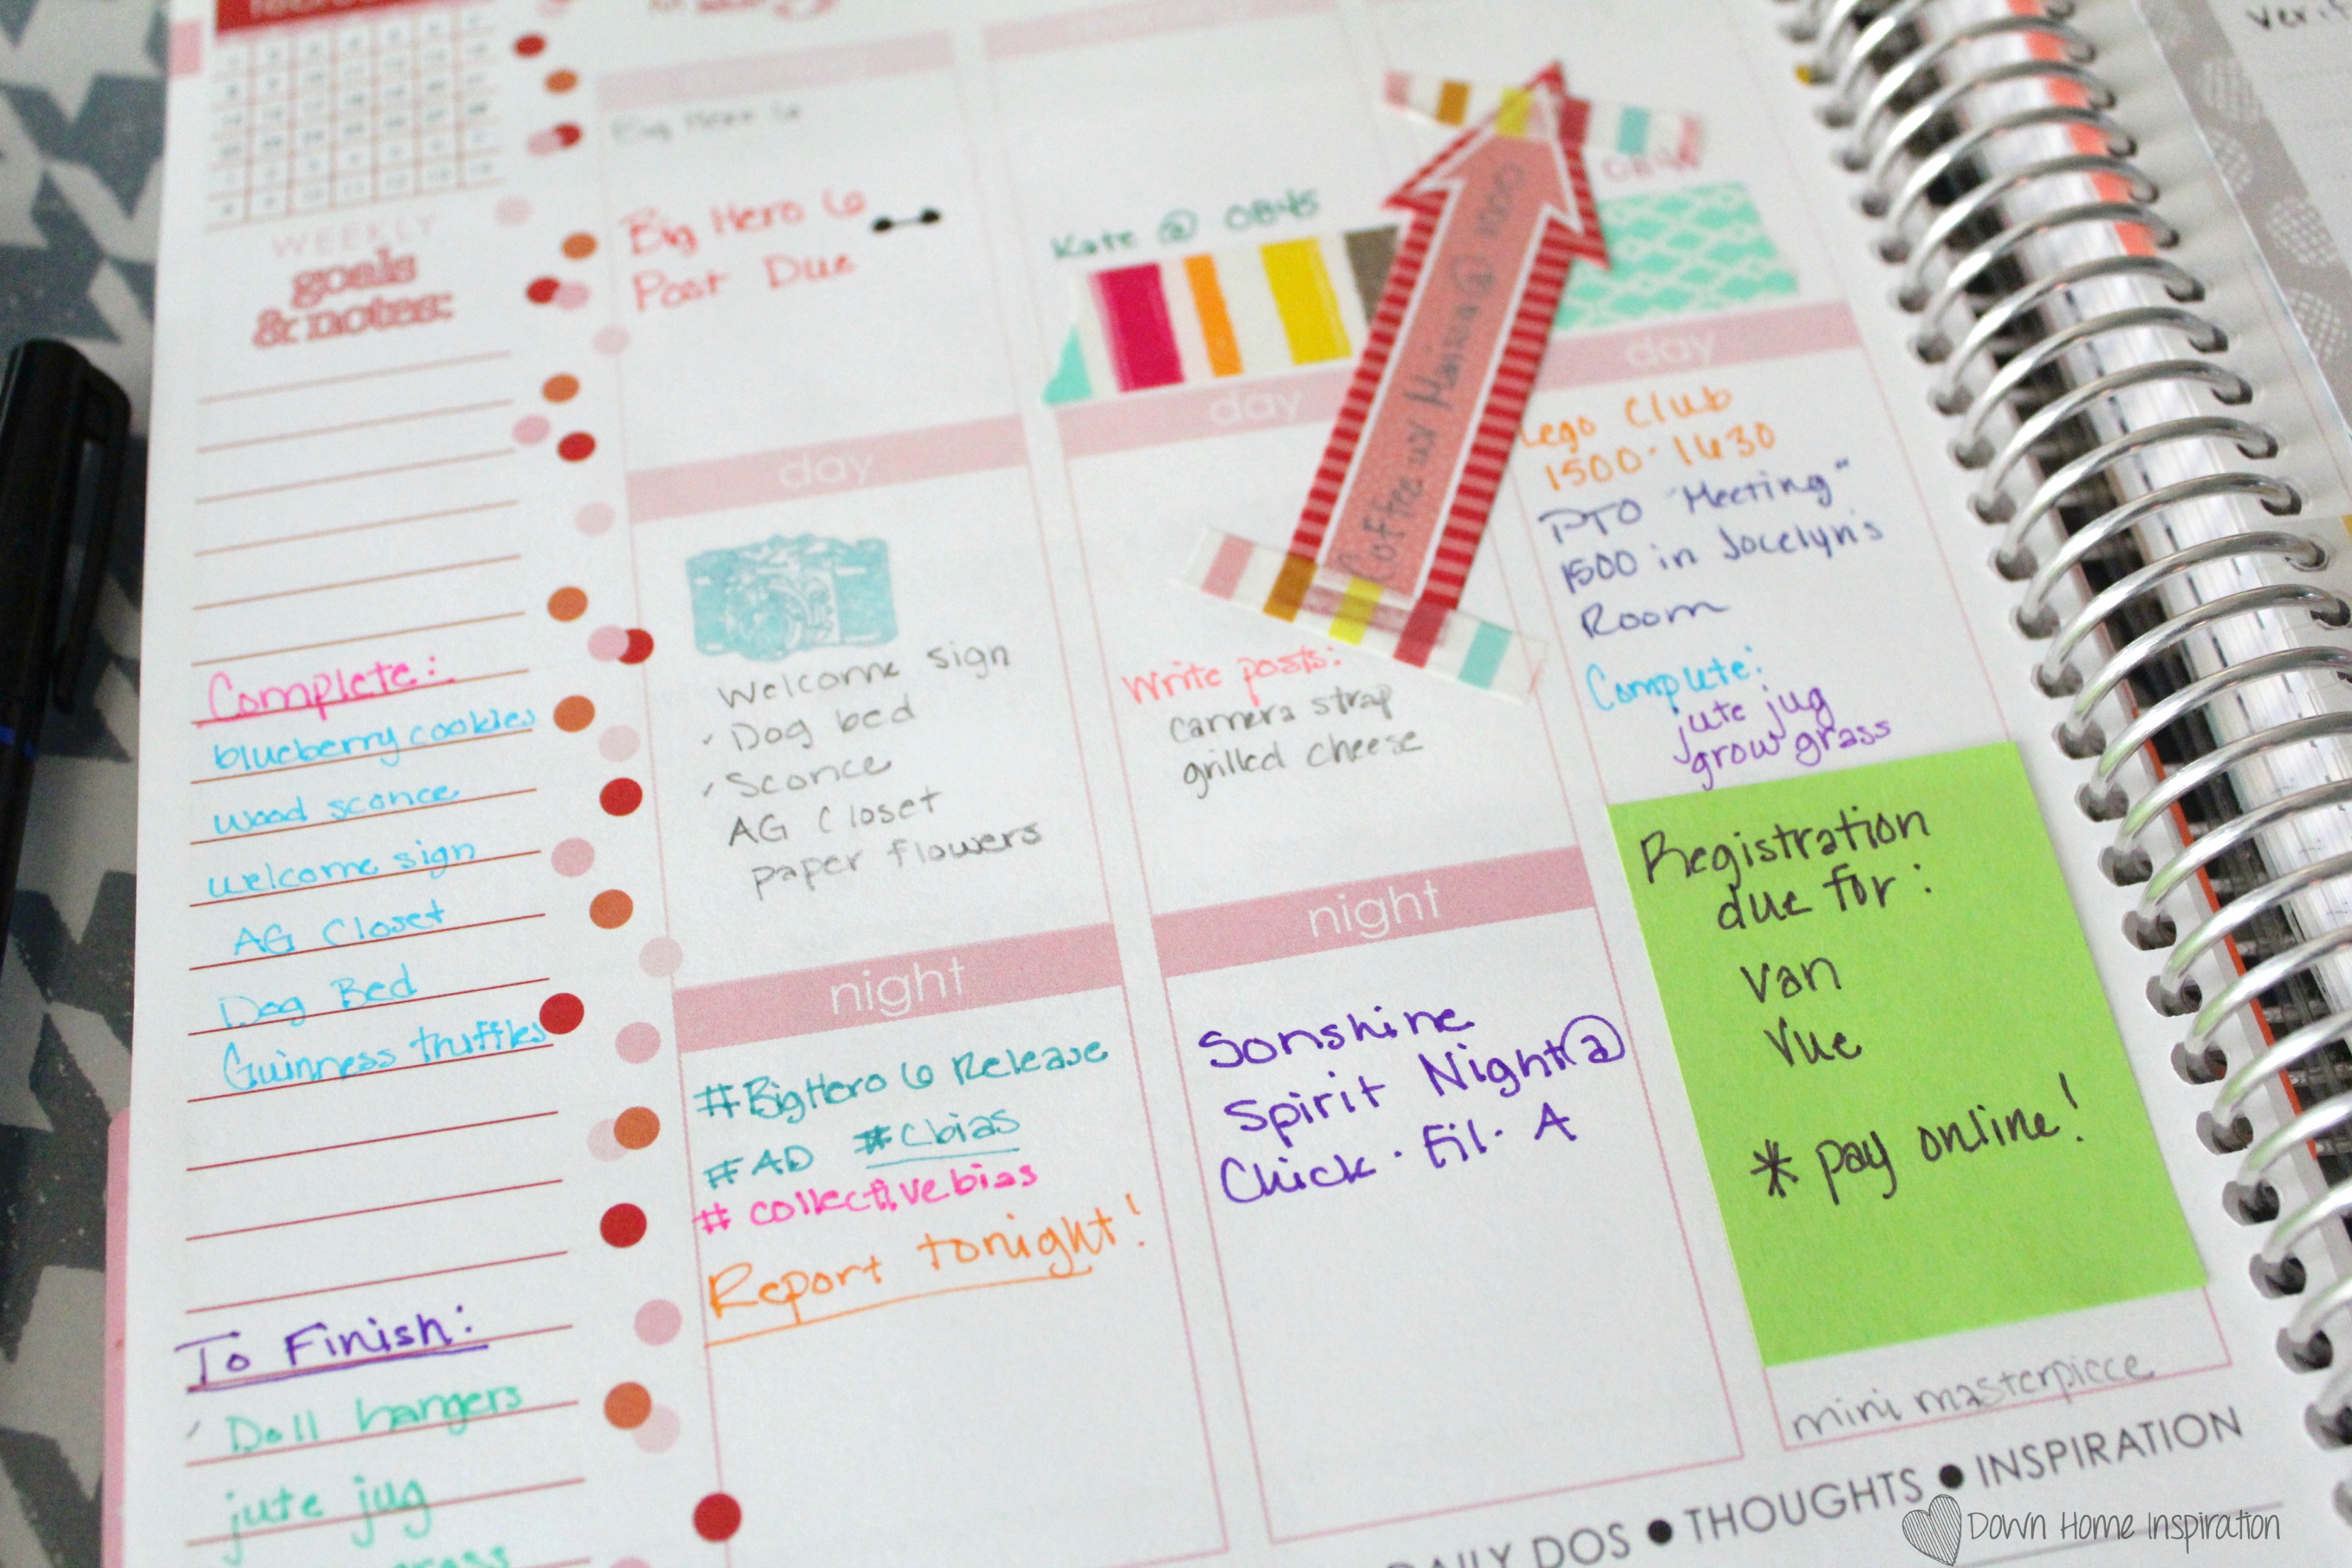 WEEKLY
goals
& notes:
Complete:
blueberry cookies
wood sconce
welcome sign
AG Closet
Dog Bed
Guinness truffles
To Finish:
Doll hangers
jute jug
grass
Big Hero 6
Big Hero 6
Post Due
day
Welcome sign
Dog bed
Sconce
AG Closet
paper flowers
night
#BigHero 6 Release
#AD #Cbias
#collectivebias
Report tonight!
Kate @ 0845
day
Coffee w/
Write posts:
camera strap
grilled cheese
night
Sonshine
Spirit Night @
Chick·Fil·A
day
Lego Club
1500-1630
PTO "Meeting"
1500 in Jocelyn's
Room
jute jug
grow grass
Registration
due for:
Van
Vue
* pay online!
mini masterpiece
DAILY DOS • THOUGHTS • INSPIRATION
Down Home Inspiration